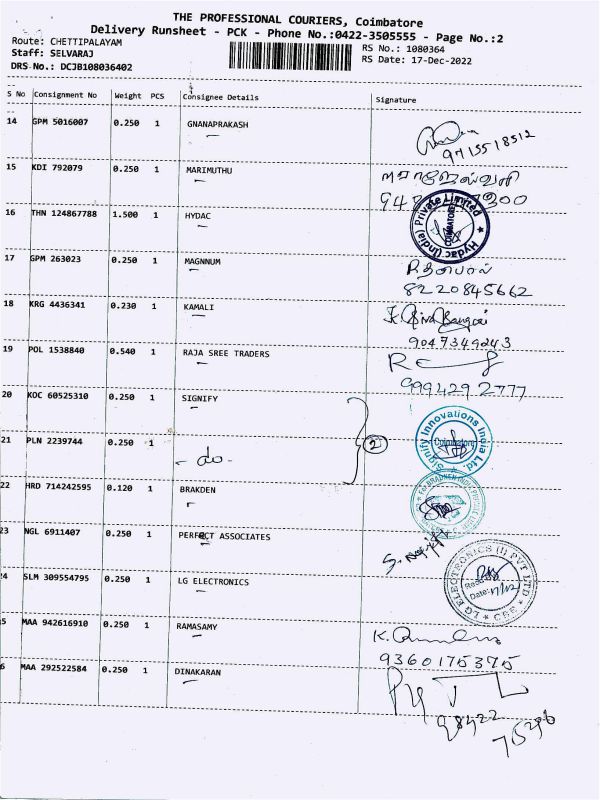 THE PROFESSIONAL COURIERS, Coimbatore
Delivery Runsheet - PCK - Phone No.:0422-3505555 - Page No.:2
Route: CHETTIPALAYAM
Staff: SELVARAJ
DRS No.: DCJB108036402
RS No.: 1080364
RS Date: 17-Dec-2022
S No Consignment No Weight PCS Consignee Details Signature
14 GPM 5016007 0.250 1 GNANAPRAKASH
9715518512
15 KDI 792079 0.250 1 MARIMUTHU
16 THN 124867788 1.500 1 HYDAC
Hydac (India) Private Limited
COIMBATORE
17 GPM 263023 0.250 1 MAGNNUM
8220845662
18 KRG 4436341 0.230 1 KAMALI
9047349243
19 POL 1538840 0.540 1 RAJA SREE TRADERS
9994292777
20 KOC 60525310 0.250 1 SIGNIFY
Signify Innovations India Ltd.
Coimbatore
21 PLN 2239744 0.250 1 - do -
2
22 HRD 714242595 0.120 1 BRAKDEN
23 NGL 6911407 0.250 1 PERFECT ASSOCIATES
24 SLM 309554795 0.250 1 LG ELECTRONICS
LG ELECTRONICS (I) PVT LTD
Date: 17/12
5 MAA 942616910 0.250 1 RAMASAMY
9360175375
6 MAA 292522584 0.250 1 DINAKARAN
98422